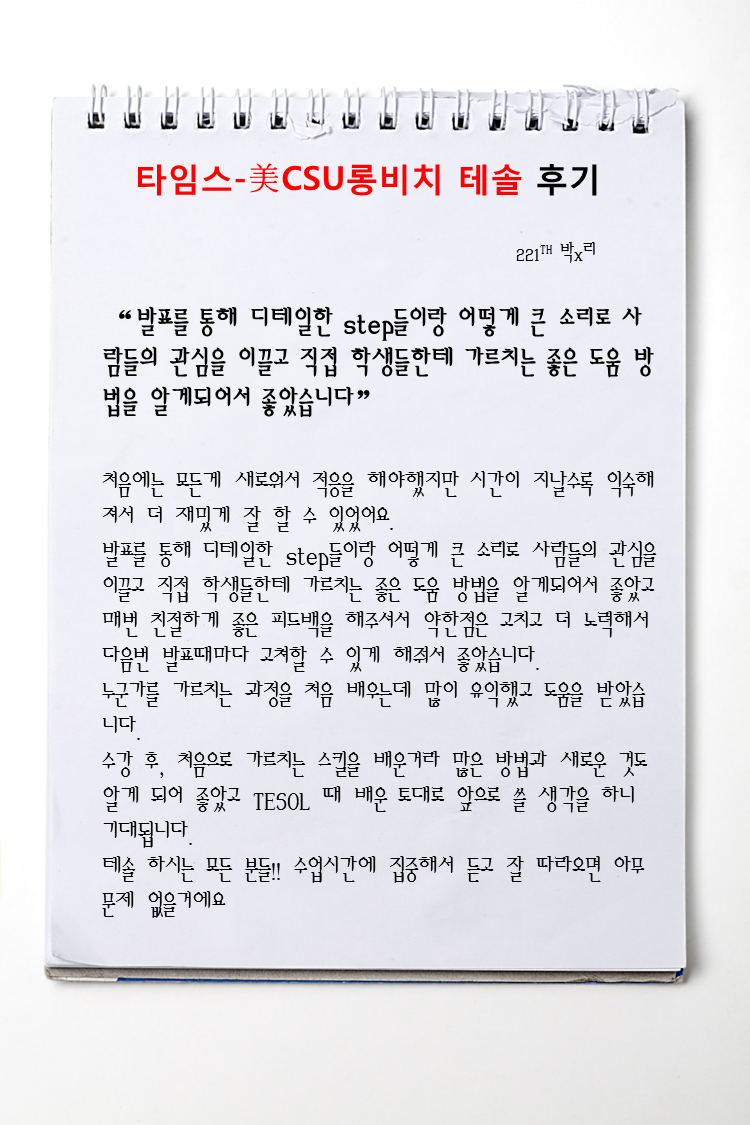 타임스-美CSU롱비치 테솔 후기
221TH 박x리
“발표를 통해 디테일한 step들이랑 어떻게 큰 소리로 사
람들의 관심을 이끌고 직접 학생들한테 가르치는 좋은 도움 방
법을 알게되어서 좋았습니다”
처음에는 모든게 새로워서 적응을 해야했지만 시간이 지날수록 익숙해
져서 더 재밌게 잘 할 수 있었어요.
발표를 통해 디테일한 step들이랑 어떻게 큰 소리로 사람들의 관심을
이끌고 직접 학생들한테 가르치는 좋은 도움 방법을 알게되어서 좋았고
매번 친절하게 좋은 피드백을 해주셔서 약한점은 고치고 더 노력해서
다음번 발표때마다 고쳐할 수 있게 해줘서 좋았습니다.
누군가를 가르치는 과정을 처음 배우는데 많이 유익했고 도움을 받았습
니다.
수강 후, 처음으로 가르치는 스킬을 배운거라 많은 방법과 새로운 것도
알게 되어 좋았고 TESOL 때 배운 토대로 앞으로 쓸 생각을 하니
기대됩니다.
테솔 하시는 모든 분들!! 수업시간에 집중해서 듣고 잘 따라오면 아무
문제 없을거에요